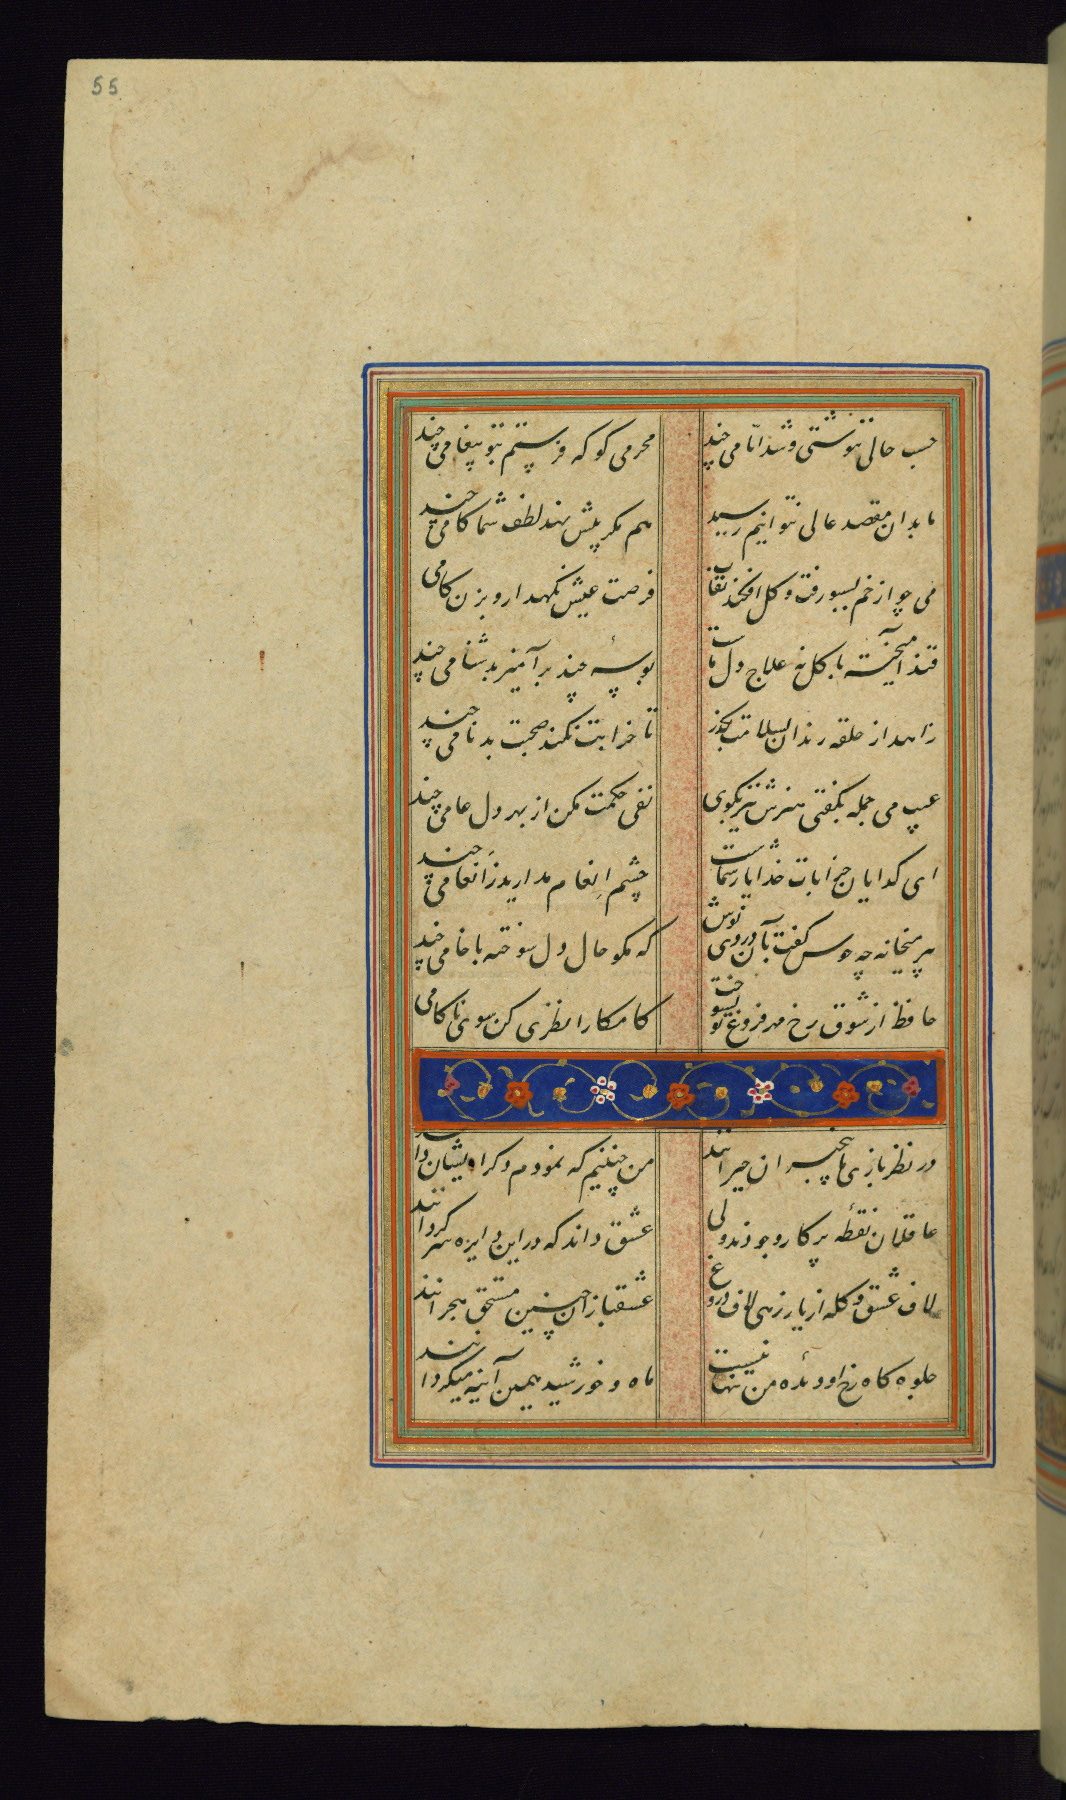 55
حسب حالی ننوشتی و شد ایّامی چند
محرمی کو که فرستم بتو پیغامی چند
ما بدان مقصد عالی نتوانیم رسید
هم مکر پیش نهد لطف شما کامی چند
می چو از خم بسبو رفت و کل افکند نقاب
فرصت عیش نکهدار و بزن کامی
قند آمیخته با کل نه علاج دل ماست
بوسهٔ چند برآمیز بدشنامی چند
زاهد از حلقه رندان بسلامت بکذر
تا خرابت نکند صحبت بدنامی چند
عیب می جمله بکفتی هنرش نیز بکوی
نفی حکمت مکن از بهر دل عامی چند
ای کدایان خرابات خدا یار شماست
چشم اِنعام مدارید زَانعامی چند
پیر میخانه چه خوش کفت بآن دردی نوش
که مکو حال دل سوخته با خامی چند
حافظ از شوق رخ مهر فروغ تو بسوخت
کامکارا نظری کن سوی ناکامی
در نظر بازی ما بیخبران حیرانند
من چنینم که نمودم وکر ایشان دانند
عاقلان نقطه پرکار وجودند ولی
عشق داند که در این دایره سرکردانند
لاف عشق و کله از یار زهی لاف دروغ
عشقبازان چنین مستحق هجرانند
جلوه کاه رخ او دیدهٔ من تنها نیست
ماه و خورشید همین آینه میکردانند